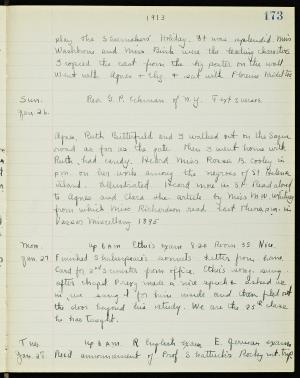 1913 173
play The Shoemakers' Holiday. It was splendid. Miss
Washburn and Miss Birch were the leading characters
I copied the cast from the big poster on the wall
Went with Agnes + Eliz. + sat with
Sun. Rev. G. P. Eckman of N.Y. Text sunrise
Jan. 26.
Agnes, Ruth Butterfield and I walked out on the
road as far as the gate. Then I went home with
Ruth, had candy. Heard Miss Rossa B. Cooley in
p.m. on her work among the negroes of St. Helena
Island. Illustrated. Read more in St. Read aloud
to Agnes and Clara the article by Miss M.W. Whitney
from which Miss Richardson read last Thurs. p.m. in
Vassar Miscellany 1895
Mon. up 6 a.m. Ethics exam 8:20 Room 35
Jan. 27 Finished Shakespeare's sonnets. Letter from home.
Card for 2nd semester from office. Ethics
after chapel Prexy made a nice speech + asked us
in, we sang for him inside and then filed out
the door beyond his study. We are the 25th class
he has taught.
Tues. up 6 a.m. R English exam E. German exam
Jan. 28 Read announcement of Prof. S. Hattuck's Rocky mt. trip